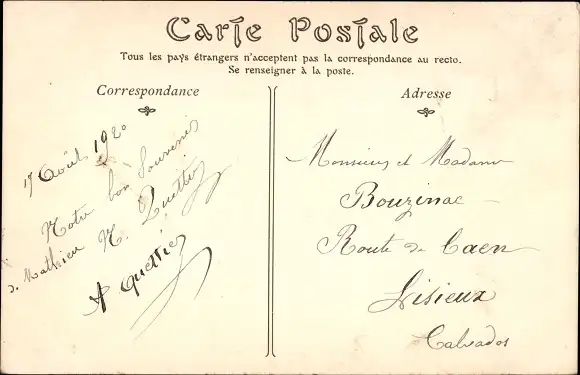 Carte Postale
Tous les pays étrangers n'acceptent pas la correspondance au recto.
Se renseigner à la poste.
Correspondance
17 Août 1920
Notre bon Souvenir
de Mathieu H. Quettier
A Quettier
Adresse
Monsieur et Madame
Bouzinac
Route de Caen
Lisieux
Calvados